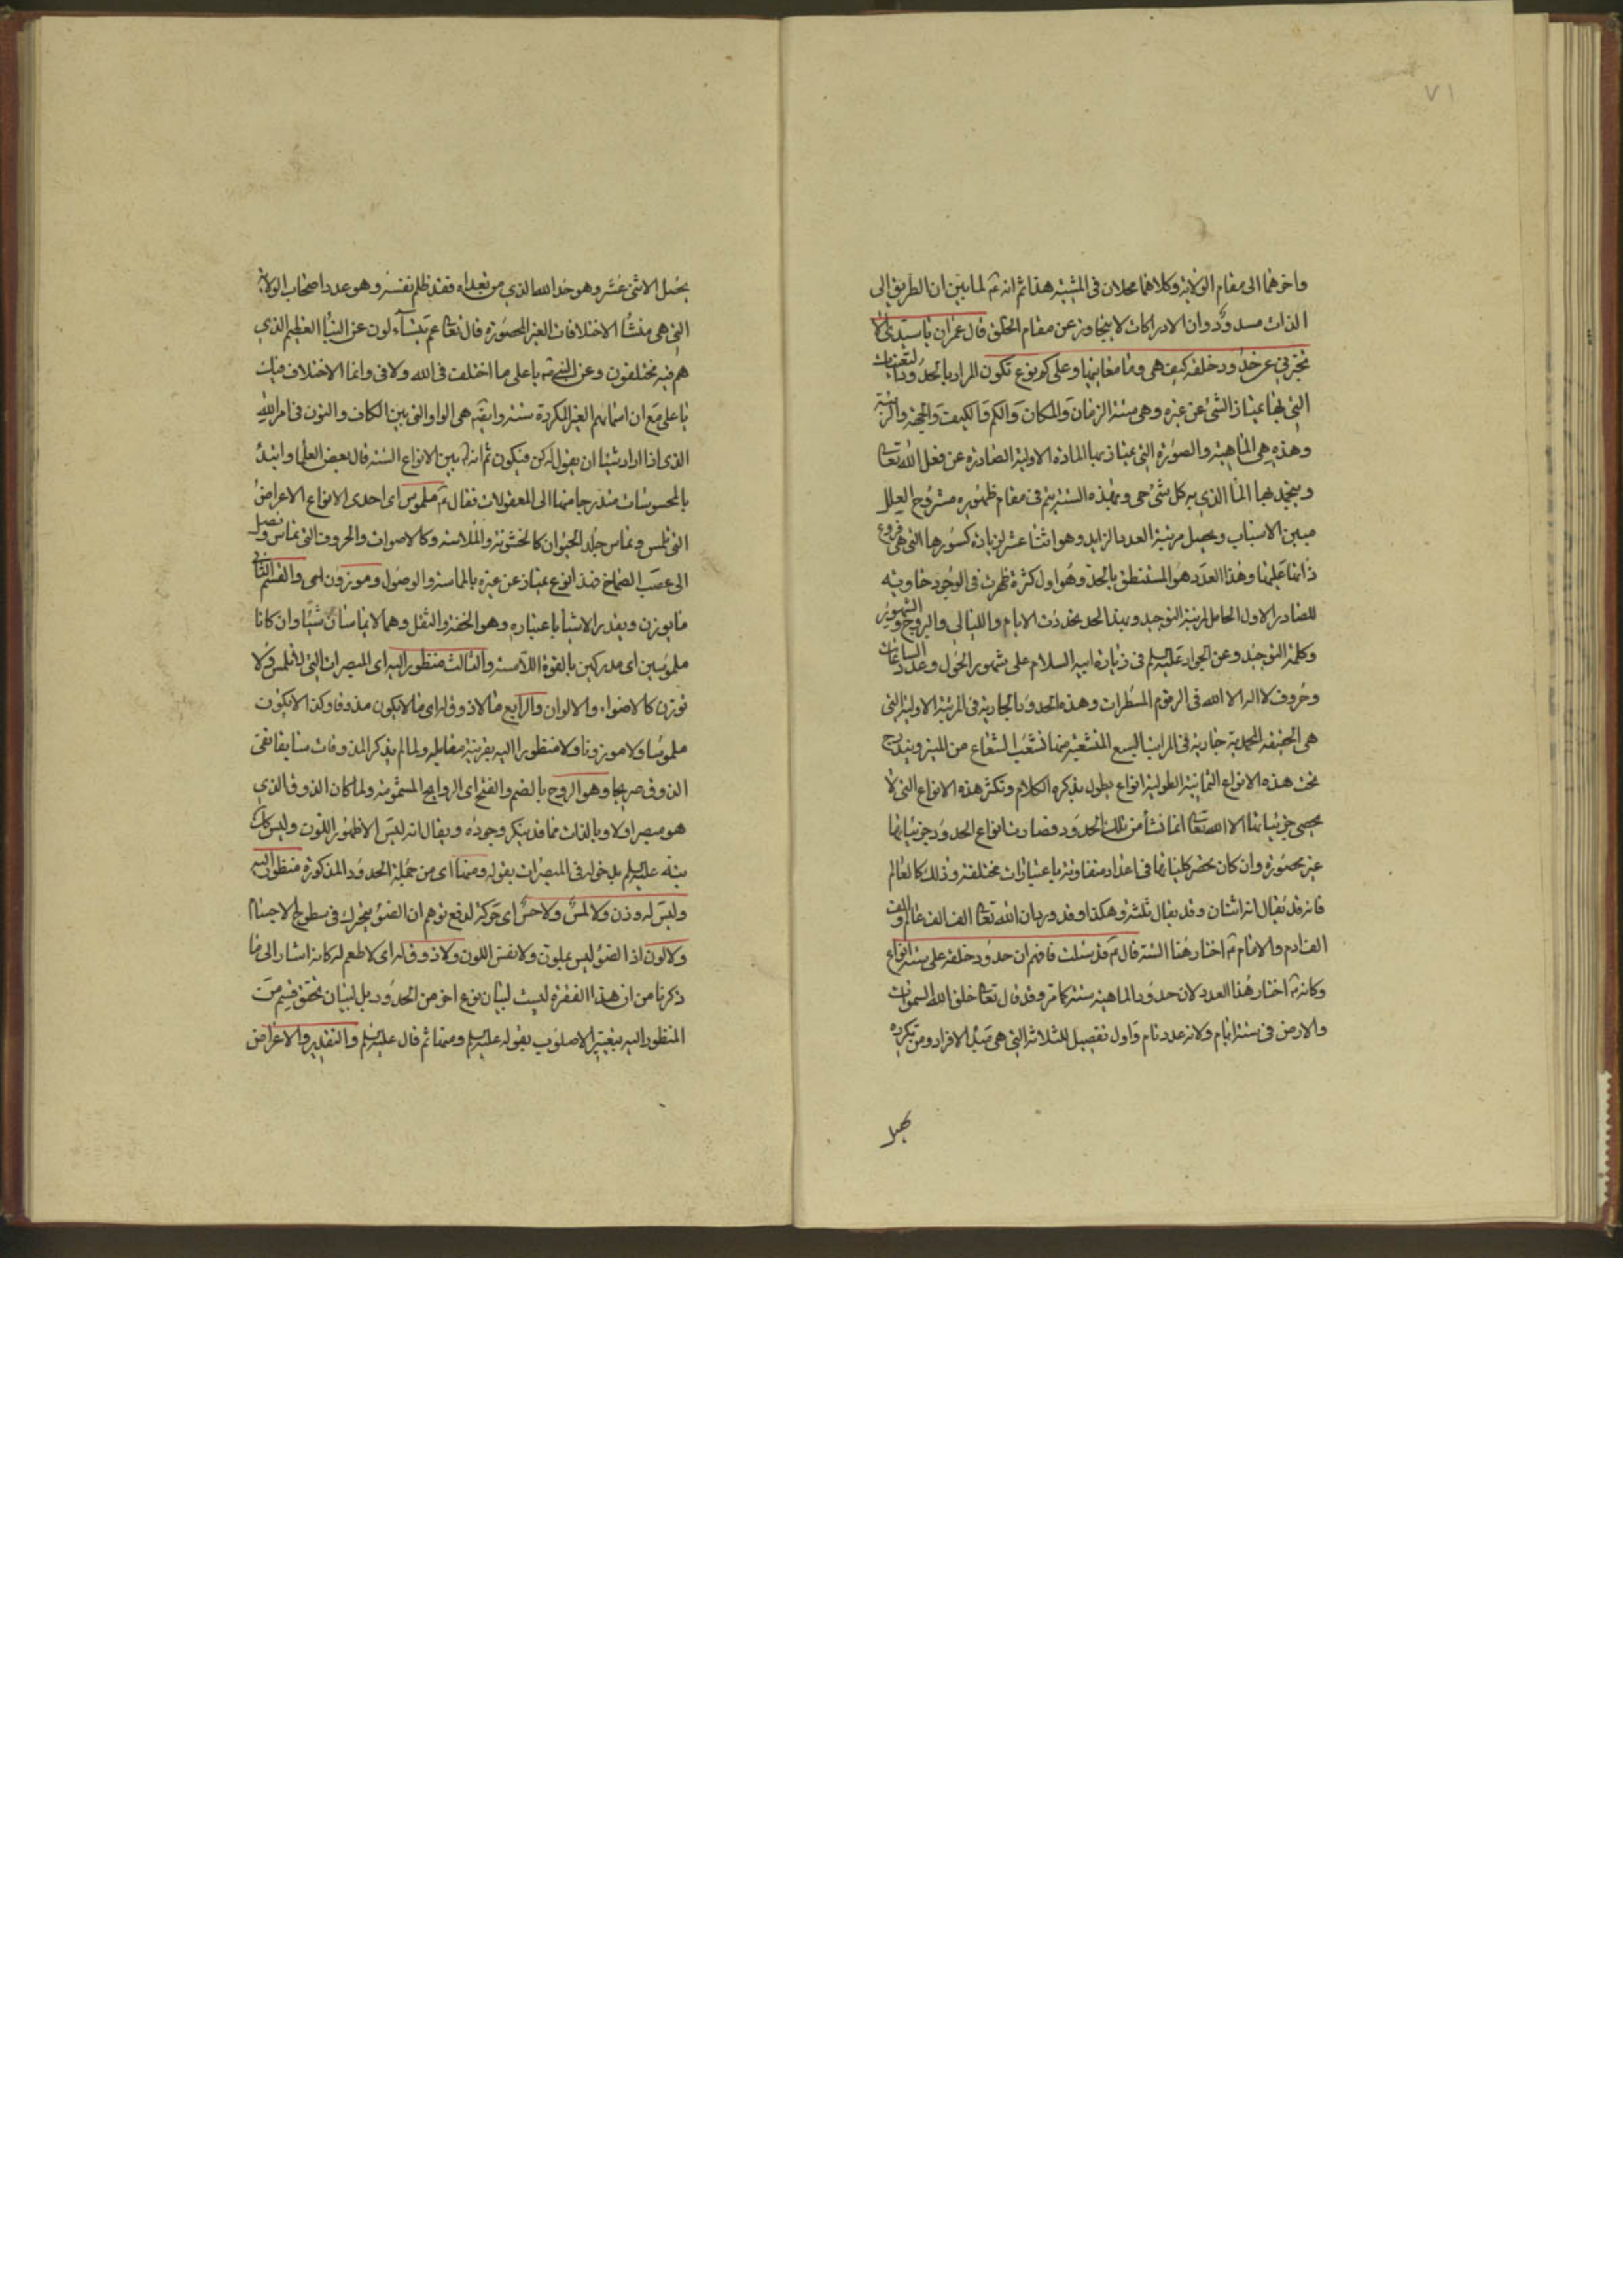 ٧١
واخرهما الى مقام الولاية وكلاهما محلان فى المشية هذا ثم انه ع لما بين ان الطريق الى
الذات مسدود وان الادراكات لا يتجاوز عن مقام الخلق قال عمران يا سيدى الا
تخبرنى عن حدود خلقه كيف هى وما معانيها وعلى كم نوع تكون المراد بالحدود التعينات
التى بها يمتاز الشئ عن غيره وهى ستة الزمان والمكان والكم والكيف والجهة والرتبة
وهذه هى الماهية والصورة التى يمتاز بها المادة الاولية الصادرة عن فعل الله تعالى
وينجمد بها الماء الذى به كل شئ حى وبهذه الستة يتم فى مقام ظهوره مشروح العلل
مبين الاسباب ويحصل مرتبة العدد الزايد وهو اثنا عشر لزيادة كسورها التى هى فروع
ذاتها عليها وهذا العدد هو المستنطق بالحد وهو اول كثرة ظهرت فى الوجود حاوية
للصادر الاول الحامل لمرتبة التوحيد وبهذا الحد تحددت الايام والليالى والبروج والشهور
وكلمة التوحيد وعن الجواد عليه السلم فى زيارة ابيه السلام على شهور الحول وعدد الساعات
وحروف لا اله الا الله فى الرقوم المسطرات وهذه الحدود الجارية فى المرتبة الاولية التى
هى الحقيقة المحمدية جارية فى المراتب السبع المتشعبة منها تشعب الشعاع من المنير ويندرج
تحت هذه الانواع الثمانية الطولية انواع يطول بذكره الكلام وتكثر هذه الانواع التى لا
يحصى جزئياتها الا الله تعالى انما نشأ من تلك الحدود فصارت انواع الحدود جزئياتها
غير محصورة وان كان حصر كلياتها فى اعداد متفاوتة باعتبارات مختلفة وذلك كالعالم
فانه قد يقال انه اثنان وقد يقال ثلثة وهكذا وقد ورد ان لله تعالى الف الف عالم والف
الف ادم والامام ع اختار هنا الستة قال ع قد سئلت فافهم ان حدود خلقه على ستة انواع
وكانه ع اختار هذا العدد لان حدود الماهية ستة كما مر وقد قال تعالى خلق الله السموات
والارض فى ستة ايام ولانه عدد تام واول تفصيل للثلاثة التى هى مبدأ الافراد ومن تكريره
يحصل
يحصل الاثنى عشر وهو حد الله الذى من تعداه فقد ظلم نفسه وهو عدد اصحاب الولاية
التى هى منشأ الاختلافات الغير المحصورة قال تعالى عم يتساءلون عن النبأ العظيم الذى
هم فيه مختلفون وعن النبى ص يا على ما اختلف فى الله ولا فى وانما الاختلاف فيك
يا على مع ان اسمائهم الغير المكررة ستة وايضه هى الواو التى بين الكاف والنون فى امر الله
الذى اذا اراد شيئا ان يقول له كن فيكون ثم انه ع بين الانواع الستة قال بعض العلما وابتدأ
بالمحسوسات متدرجا منها الى المعقولات فقال ع ملموس اى احدى الانواع الاعراض
التى تلمس وتماس جلد الحيوان كالخشونة والملاسة وكالاصوات والحروف التى تماس وتصل
الى عصب الصماخ فهذا نوع يمتاز عن غيره بالمماسة والوصول وموزون اى والقسم الثانى
ما يوزن ويقدر الاشيا باعتباره وهو الخفة والثقل وهما لا يماسان شيئا وان كانا
ملموسين اى مدركين بالقوة اللامسة والثالث منظور اليه اى المبصرات التى لا تلمس ولا
توزن كالاضواء والالوان والرابع ما لا ذوق له اى ما لا يكون مذوقا وكذا لا يكون
ملموسا ولا موزونا ولا منظورا اليه بقرينة مقابله ولما لم يذكر المذوقات سابقا نفى
الذوق صريحا وهو الروح بالضم والفتح اى الروايح المشمومة ولما كان الذوق الذى
هو مبصر اولا وبالذات مما قد ينكر وجوده ويقال انه ليس الا ظهور اللون وليس كك
نبه عليه السلم بدخوله فى المبصرات بقوله ومنها اى من جملة الحدود المذكورة منظور اليه
وليس له وزن ولا لمس ولا حس اى حركة لدفع توهم ان الضوء يتحرك فى سطوح الاجسام
ولا لون اذ الضوء ليس بملون ولا نفس اللون ولا ذوق له اى لا طعم له كانه اشار الى ما
ذكرنا من ان هذا الفقرة ليست لبيان نوع اخر من الحدود بل لبيان تحقق قسم من
المنظور اليه بتغيير الاسلوب بقوله عليه السلم ومنها ثم قال عليه السلم والتقدير والاعراض